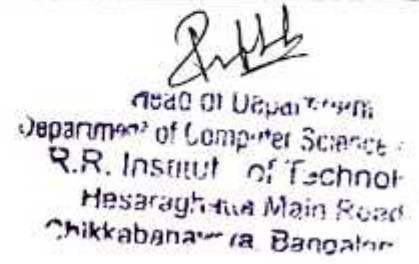 Head of Department
Department of Computer Science
R.R. Institut of Technol
Hesaraghatta Main Road
Chikkabanavara Bangalor